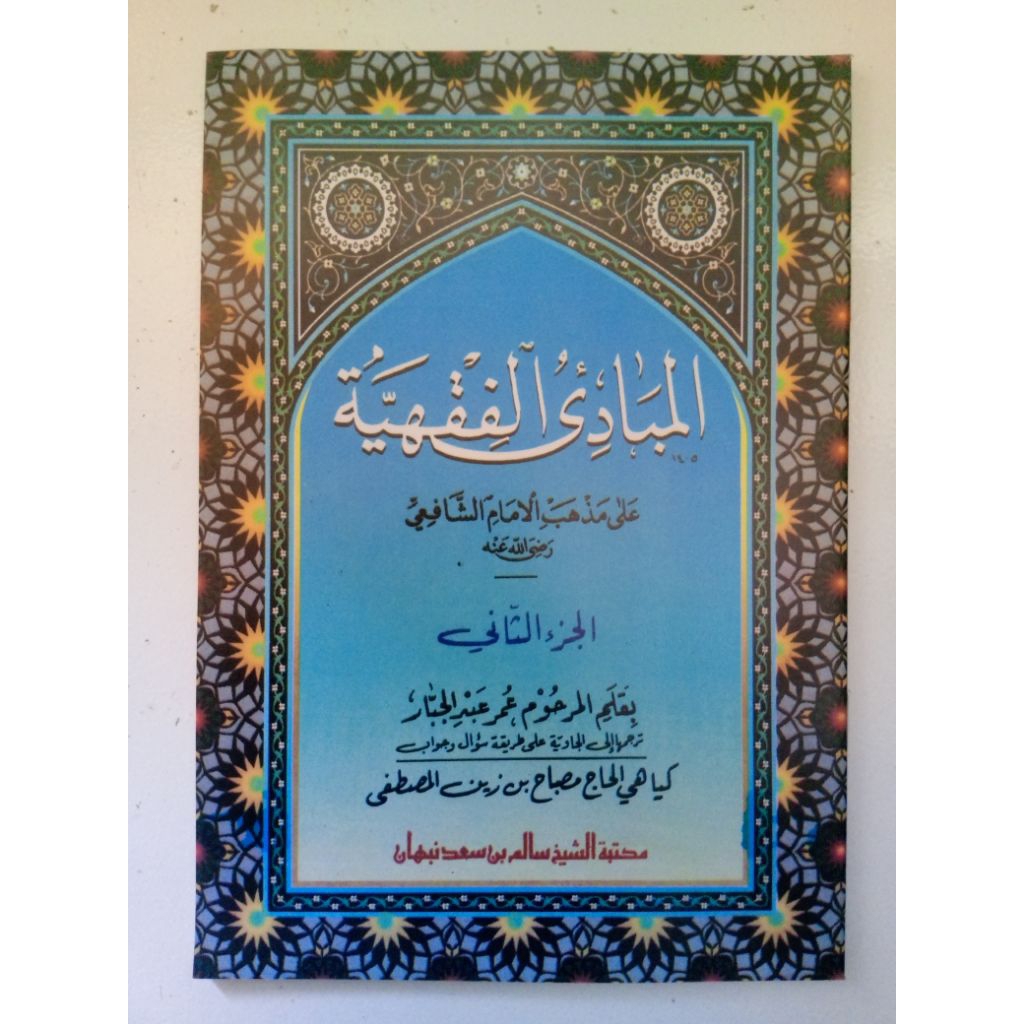 المَبَادِئُ الفِقْهِيَّةُ
١٤٠٥
عَلَى مَذْهَبِ الإمَامِ الشَّافِعِيْ
رَضِيَ اللّٰه عَنْه
الجزء الثّاني
بِقَلَمِ المرحُوْم، عُمر عَبْدِ الجبَّار
ترجمها إلى الجاوية على طريقة سؤال وجواب
كياهي الحاج مصباح بن زين المصطفى
مكتبة الشيخ سالم بن سعد نبهان